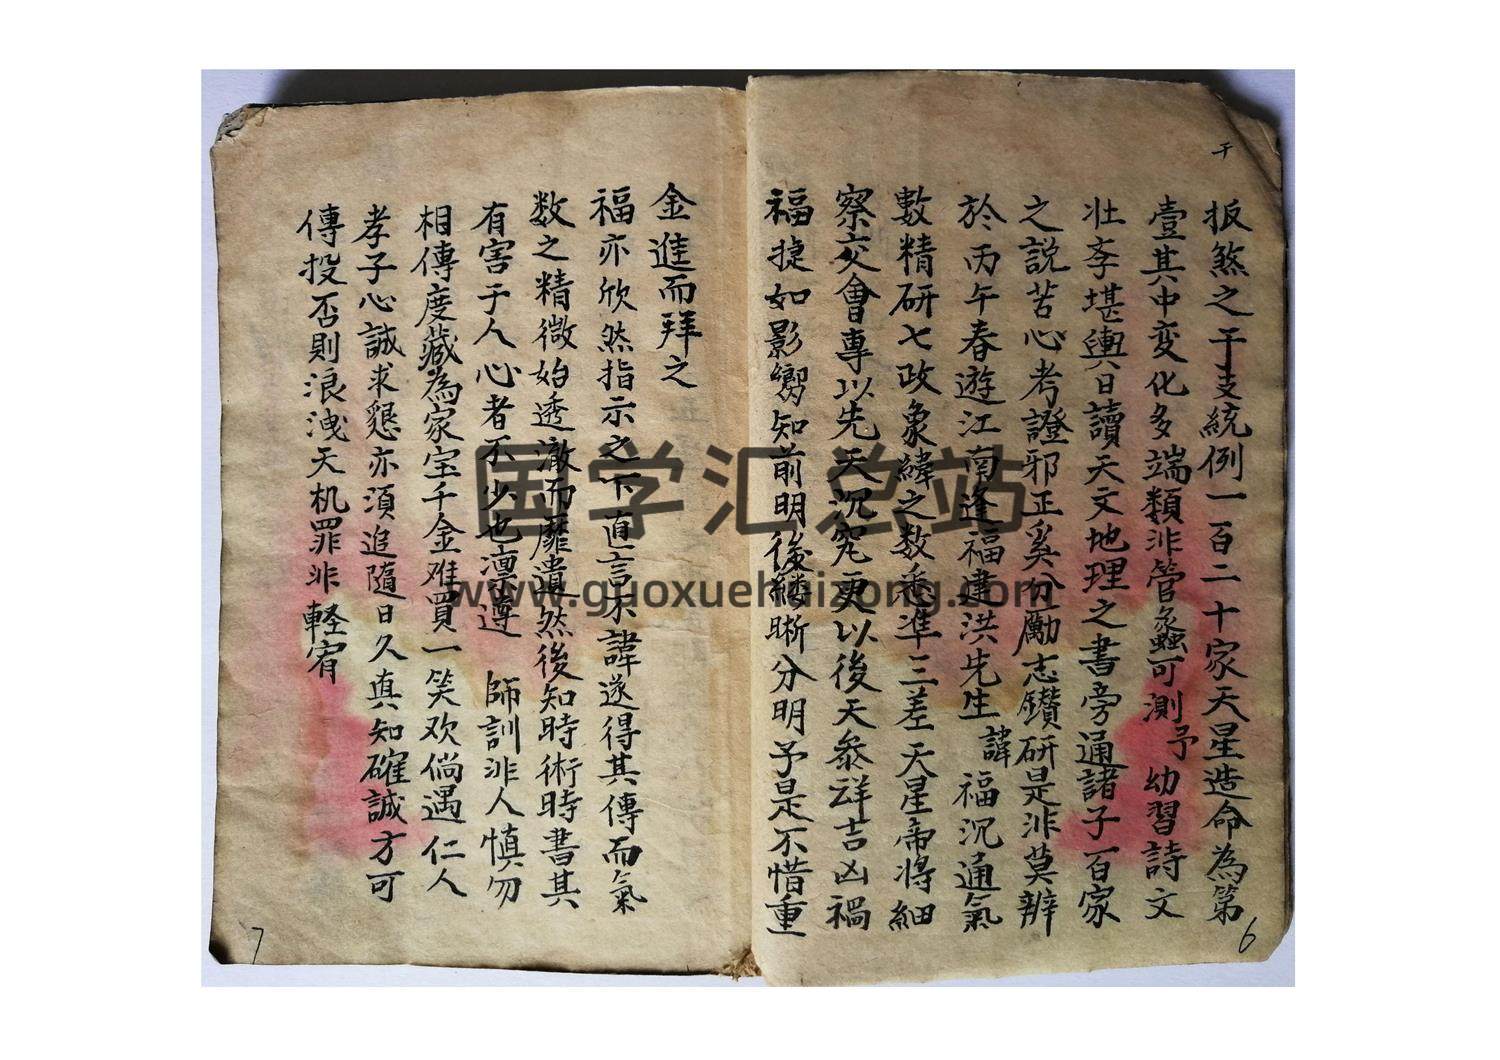 干
扳煞之干支統例一百二十家天星造命為第
壹其中変化多端類非管蠡可測予幼習詩文
壮斈堪輿日讀天文地理之書旁通諸子百家
之説苦心考證邪正奚分勵志鑚研是非莫辨
於丙午春遊江南逢福建洪先生諱福沉通氣
數精研七政象緯之数悉準三差天星帝将細
察交會專以先天沉究更以後天叅詳吉凶禍
福捷如影嚮知前明後縷晰分明予是不惜重
6
金進而拜之
福亦欣然指示之下直言不諱遂得其傳而氣
数之精微始透澈而靡遺然後知時術時書其
有害于人心者不少也凛遵 師訓非人慎勿
相傳度藏為家宝千金难買一笑欢倘遇仁人
孝子心誠求懇亦須追隨日久真知確誠方可
傳投否則浪洩天机罪非輕宥
7
国学汇总站
www.guoxuehuizong.com